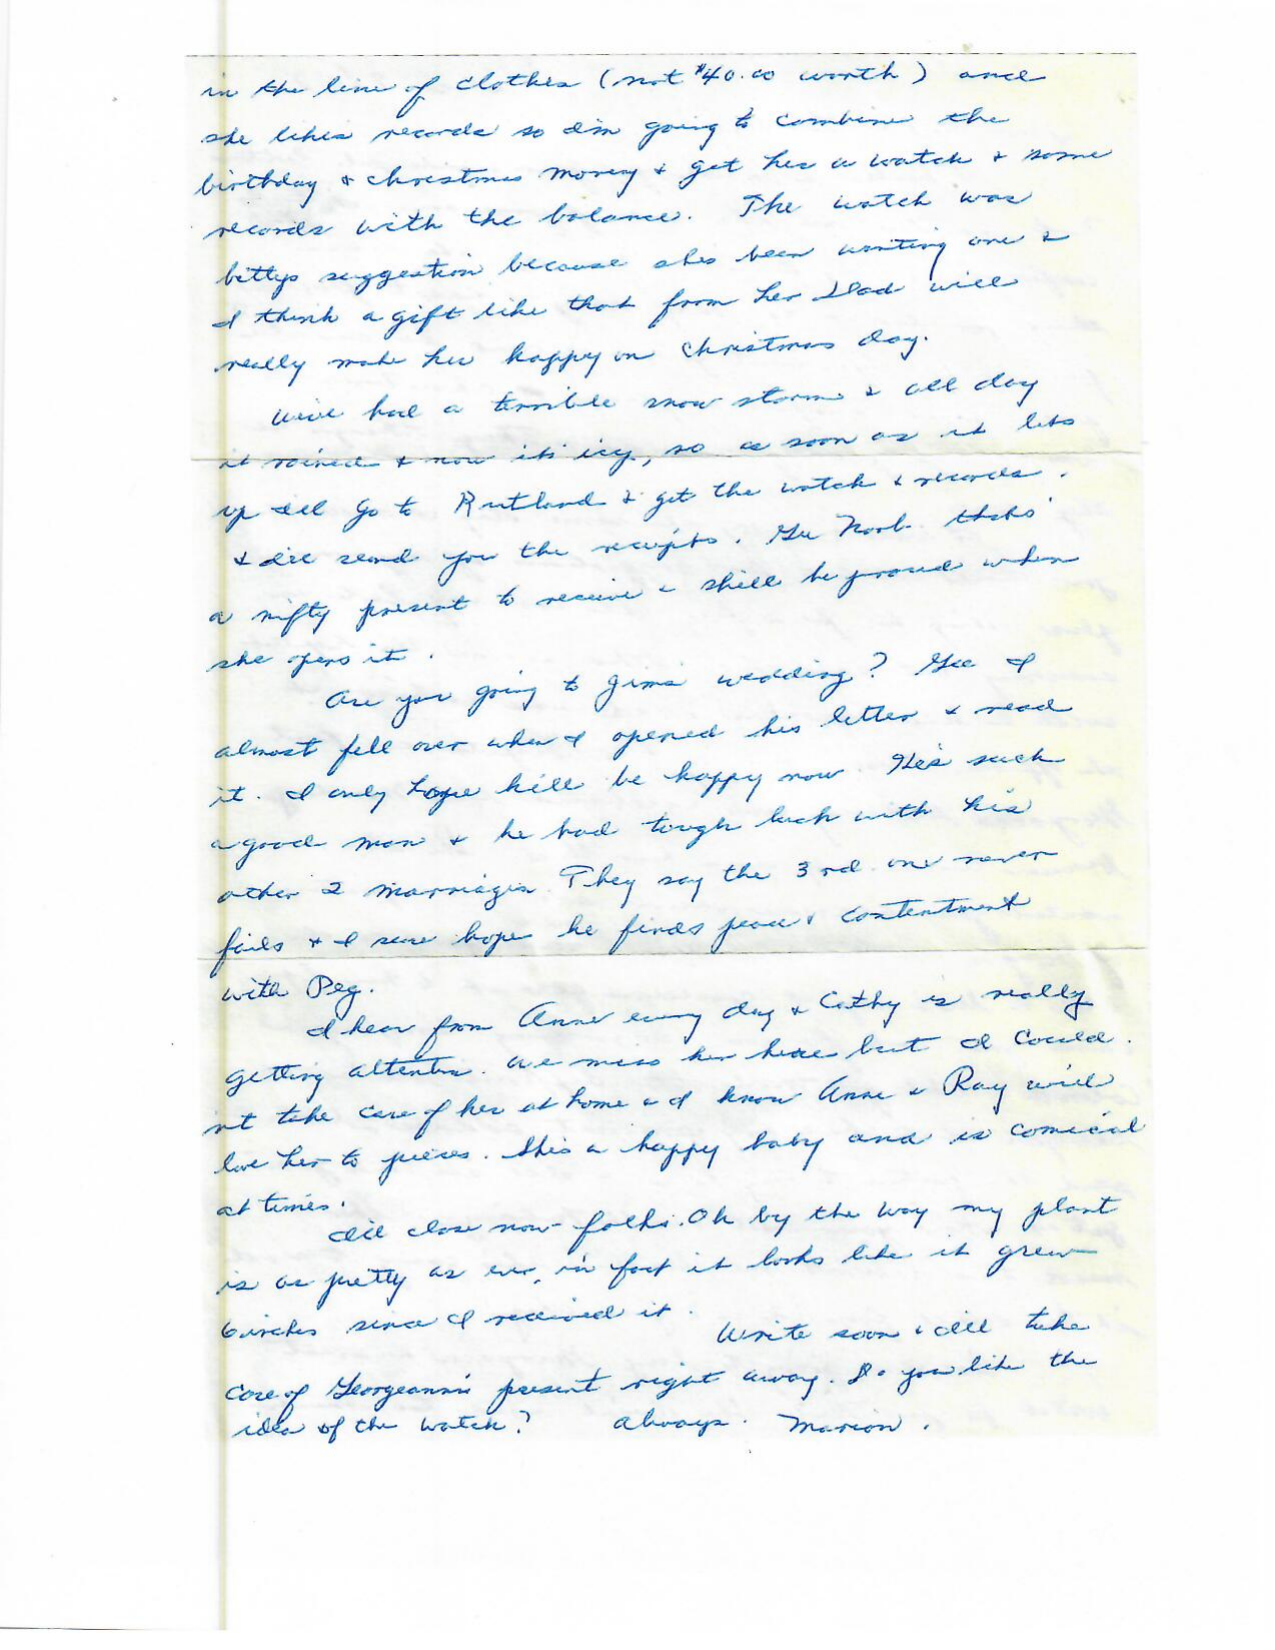 in the line of clothes (not $40.00 worth) and
she likes records so I'm going to combine the
birthday & christmas money & get her a watch & some
records with the balance. The watch was
bettys suggestion because shes been wanting one &
I think a gift like that from her Dad will
really make her happy on Christmas day.
We've had a terrible snow storm & all day
it rained & now it's icy, so as soon as it lets
up I'll go to Rutland & get the watch & records.
& I'll send you the receipts. Gee Norb thats
a nifty present to receive & she'll be proud when
she opens it.
Are you going to Jims wedding? Gee I
almost fell over when I opened his letter & read
it. I only hope he'll be happy now. He's such
a good man & he had tough luck with his
other 2 marriages. They say the 3rd one never
fails & I sure hope he finds peace & contentment
with Peg.
I hear from Anne every day & Cathy is really
getting attention. We miss her here but I could
n't take care of her at home & I know Anne & Ray will
love her to pieces. She's a happy baby and is comical
at times.
I'll close now folks. Oh by the way my plant
is as pretty as ever, in fact it looks like it grew
6 inches since I received it.
Write soon & I'll take
care of Georgeann's present right away. Do you like the
idea of the watch? Always. Marion.